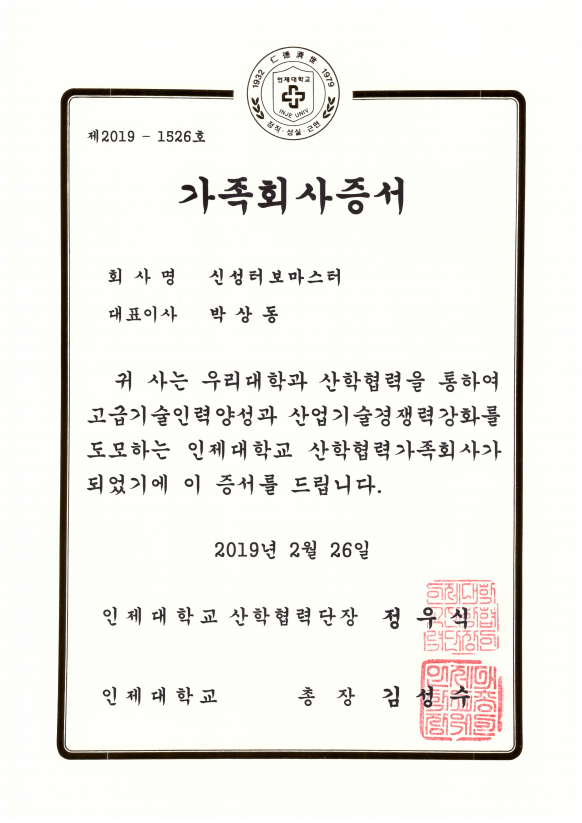 1932 仁德濟世 1979
인제대학교
INJE UNIV
정직·성실·근면
제2019 - 1526호
가족회사증서
회 사 명 신성터보마스터
대표이사 박 상 동
귀 사는 우리대학과 산학협력을 통하여
고급기술인력양성과 산업기술경쟁력강화를
도모하는 인제대학교 산학협력가족회사가
되었기에 이 증서를 드립니다.
2019년 2월 26일
인제대학교 산학협력단장 정우식
인제대학교 총 장 김성수